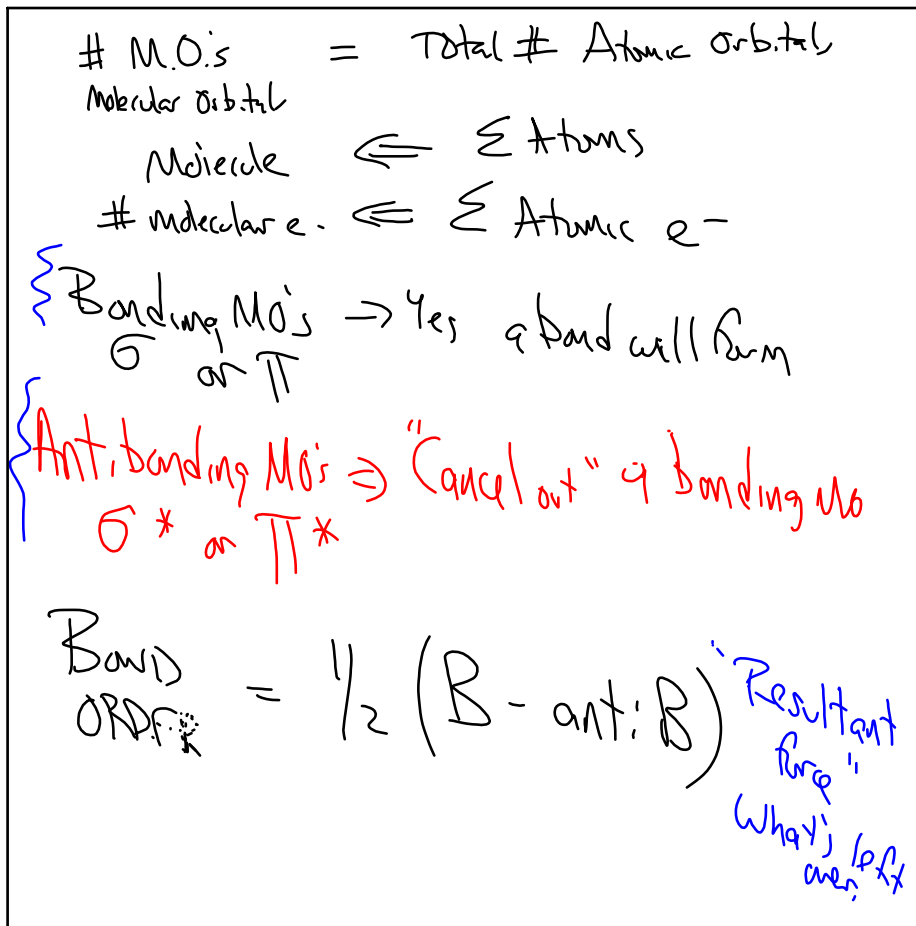 # M.O.'s = Total # Atomic Orbitals
Molecular Orbital
Molecule ⇐ Σ Atoms
# molecular e- ⇐ Σ Atomic e-
Bonding MO's ⇒ Yes a bond will form
σ or π
Antibonding MO's ⇒ "Cancel out" a Bonding MO
σ* or π*
BOND
ORDER = 1/2 (B - anti B)
"Resultant
force"
What's left
over